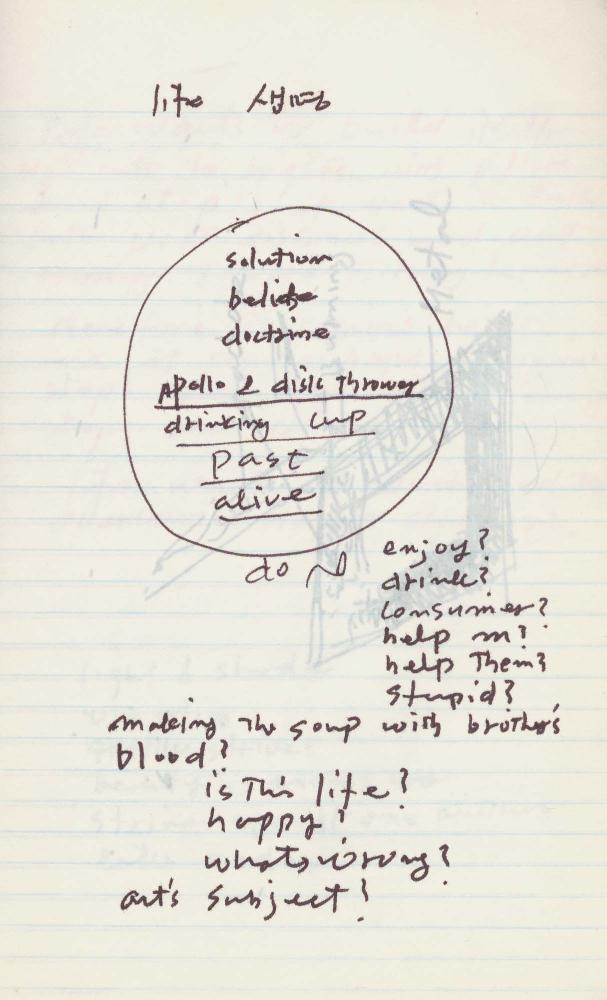 life 생명
solution
beliefe
doctrine
Apollo & disk Thrower
drinking cup
past
alive
do
enjoy?
drink?
consumer?
help m?
help Them?
stupid?
making The soup with brother's
blood?
is This life?
happy?
whats wrong?
art's subject?